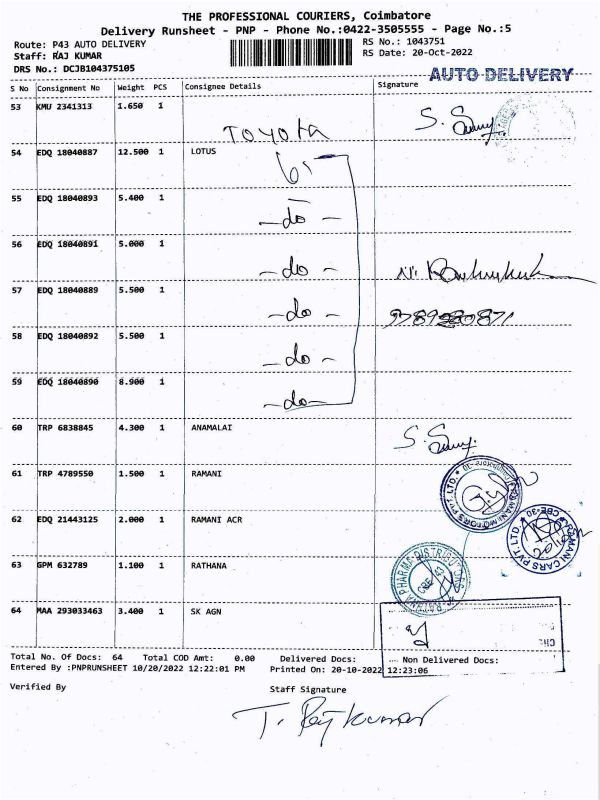 THE PROFESSIONAL COURIERS, Coimbatore
Delivery Runsheet - PNP - Phone No.:0422-3505555 - Page No.:5
Route: P43 AUTO DELIVERY
Staff: RAJ KUMAR
DRS No.: DCJB104375105
RS No.: 1043751
RS Date: 20-Oct-2022
AUTO DELIVERY
S No Consignment No Weight PCS Consignee Details Signature
53 KMU 2341313 1.650 1
TOYOTA
54 EDQ 18040887 12.500 1 LOTUS
55 EDQ 18040893 5.400 1
-do-
56 EDQ 18040891 5.000 1
-do-
57 EDQ 18040889 5.500 1
-do-
58 EDQ 18040892 5.500 1
-do-
59 EDQ 18040890 8.900 1
-do-
60 TRP 6838845 4.300 1 ANAMALAI
61 TRP 4789550 1.500 1 RAMANI
62 EDQ 21443125 2.000 1 RAMANI ACR
63 GPM 632789 1.100 1 RATHANA
64 MAA 293033463 3.400 1 SK AGN
Total No. Of Docs: 64 Total COD Amt: 0.00 Delivered Docs: Non Delivered Docs:
Entered By :PNPRUNSHEET 10/20/2022 12:22:01 PM Printed On: 20-10-2022 12:23:06
Verified By
Staff Signature
T. Rajkumar